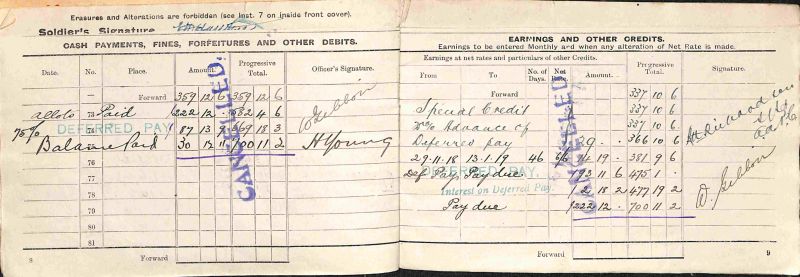 Erasures and Alterations are forbidden (see Inst. 7 on inside front cover).
Soldier's Signature
CASH PAYMENTS, FINES, FORFEITURES AND OTHER DEBITS.
Date. No. Place. Amount. Progressive Total. Officer's Signature.
Forward 359 12 6 359 12 6
allots 73 Paid 222 12 582 4 6 W Gibbon
75% 74 DEFERRED PAY 87 13 9 669 18 3
Balance Paid 30 12 11 700 11 2 H Young
76
77 DEFERRED PAY
78
79
80
81
CANCELLED
Forward
8
EARNINGS AND OTHER CREDITS.
Earnings to be entered Monthly and when any alteration of Net Rate is made.
Earnings at net rates and particulars of other Credits.
From To No. of Days. Net Amount. Progressive Total. Signature.
Forward 337 10 6
Special Credit 337 10 6
Advance of 337 10 6
Deferred pay 29 366 10 6
29.11.18 13.1.19 46 6/6 14 19 381 9 6
Def Pay, Pay due 93 11 6 475 1
Interest on Deferred Pay. 2 18 2 477 19 2
Pay due 222 12 700 11 2
W. Gibbon
CANCELLED
DEFERRED PAY
Forward
9